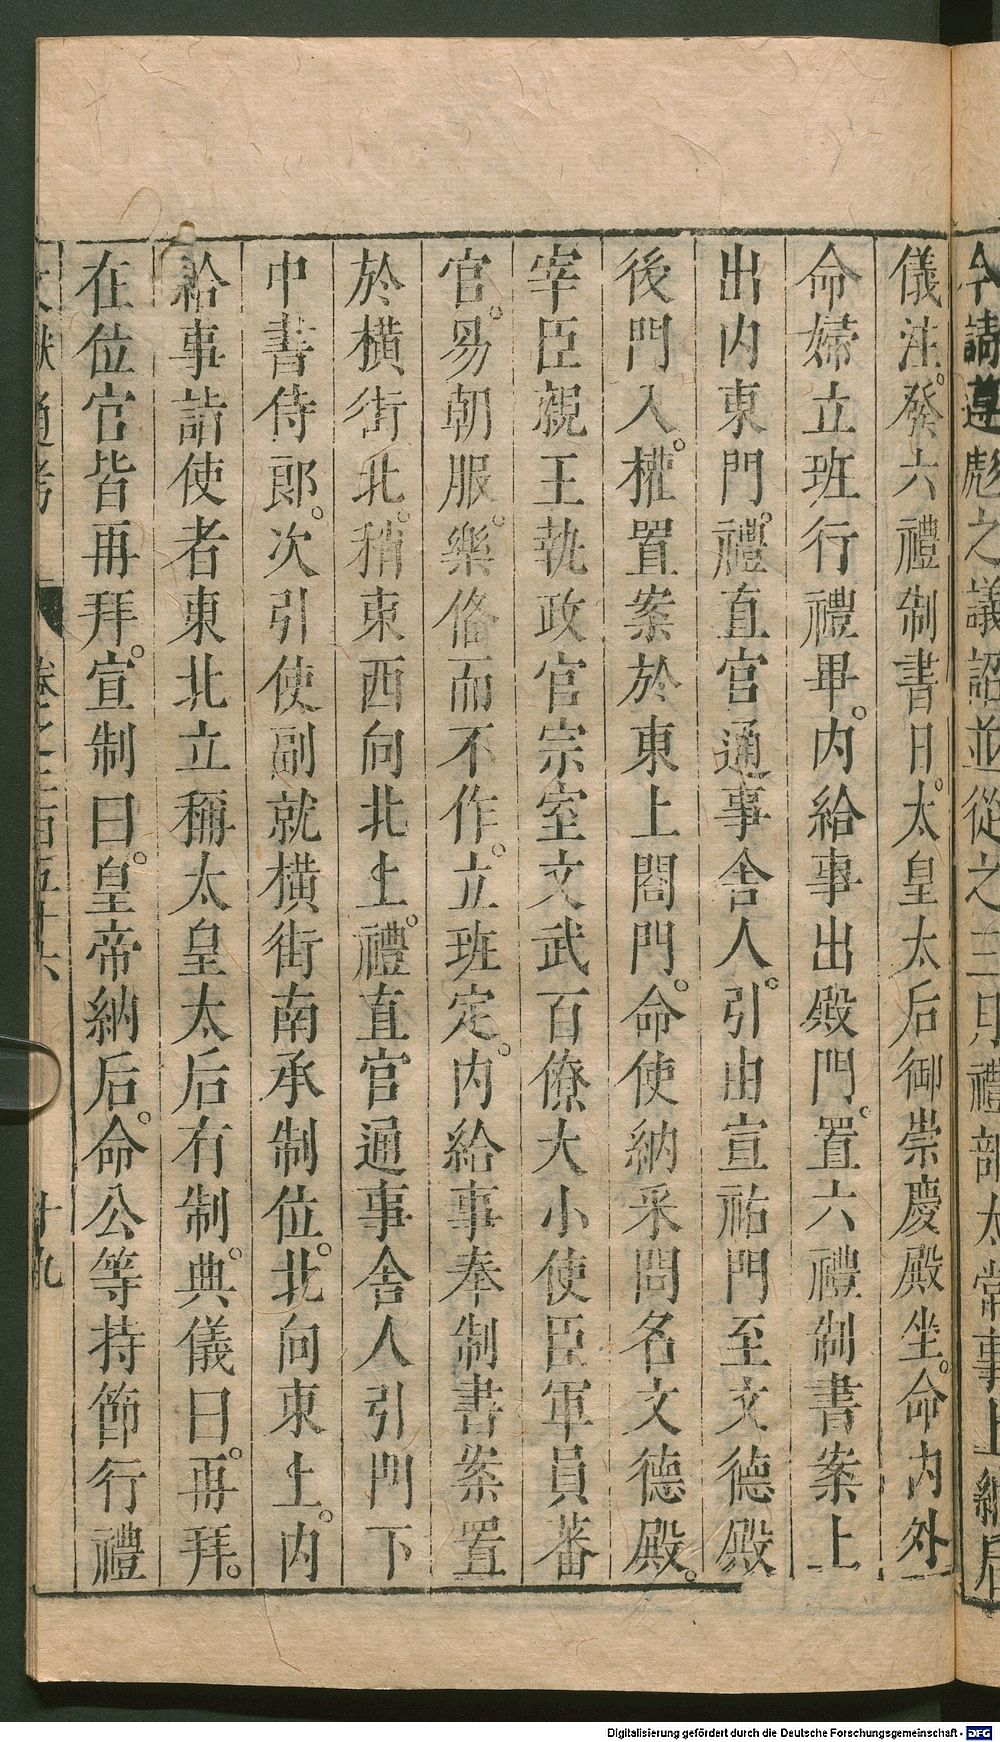 今請遵彪之議詔並從之三月禮部太常事上納后
儀注。發六禮制書日。太皇太后御崇慶殿坐。命内外
命婦立班行禮畢。内給事出殿門。置六禮制書案上
出内東門。禮直官通事舍人。引由宣祐門至文德殿
後門入。權置案於東上閤門。命使納采問名文德殿。
宰臣親王執政官宗室文武百僚大小使臣軍員蕃
官。易朝服。樂俻而不作。立班定。内給事奉制書案置
於橫街北。稍東西向北上。禮直官通事舍人引門下
中書侍郎。次引使副就橫街南承制位。北向東上。内
給事詣使者東北立稱太皇太后有制。典儀曰。再拜。
在位官皆再拜。宣制曰。皇帝納后。命公等持節行禮
文獻通考 卷之二百五十六 十九
Digitalisierung gefördert durch die Deutsche Forschungsgemeinschaft - DFG